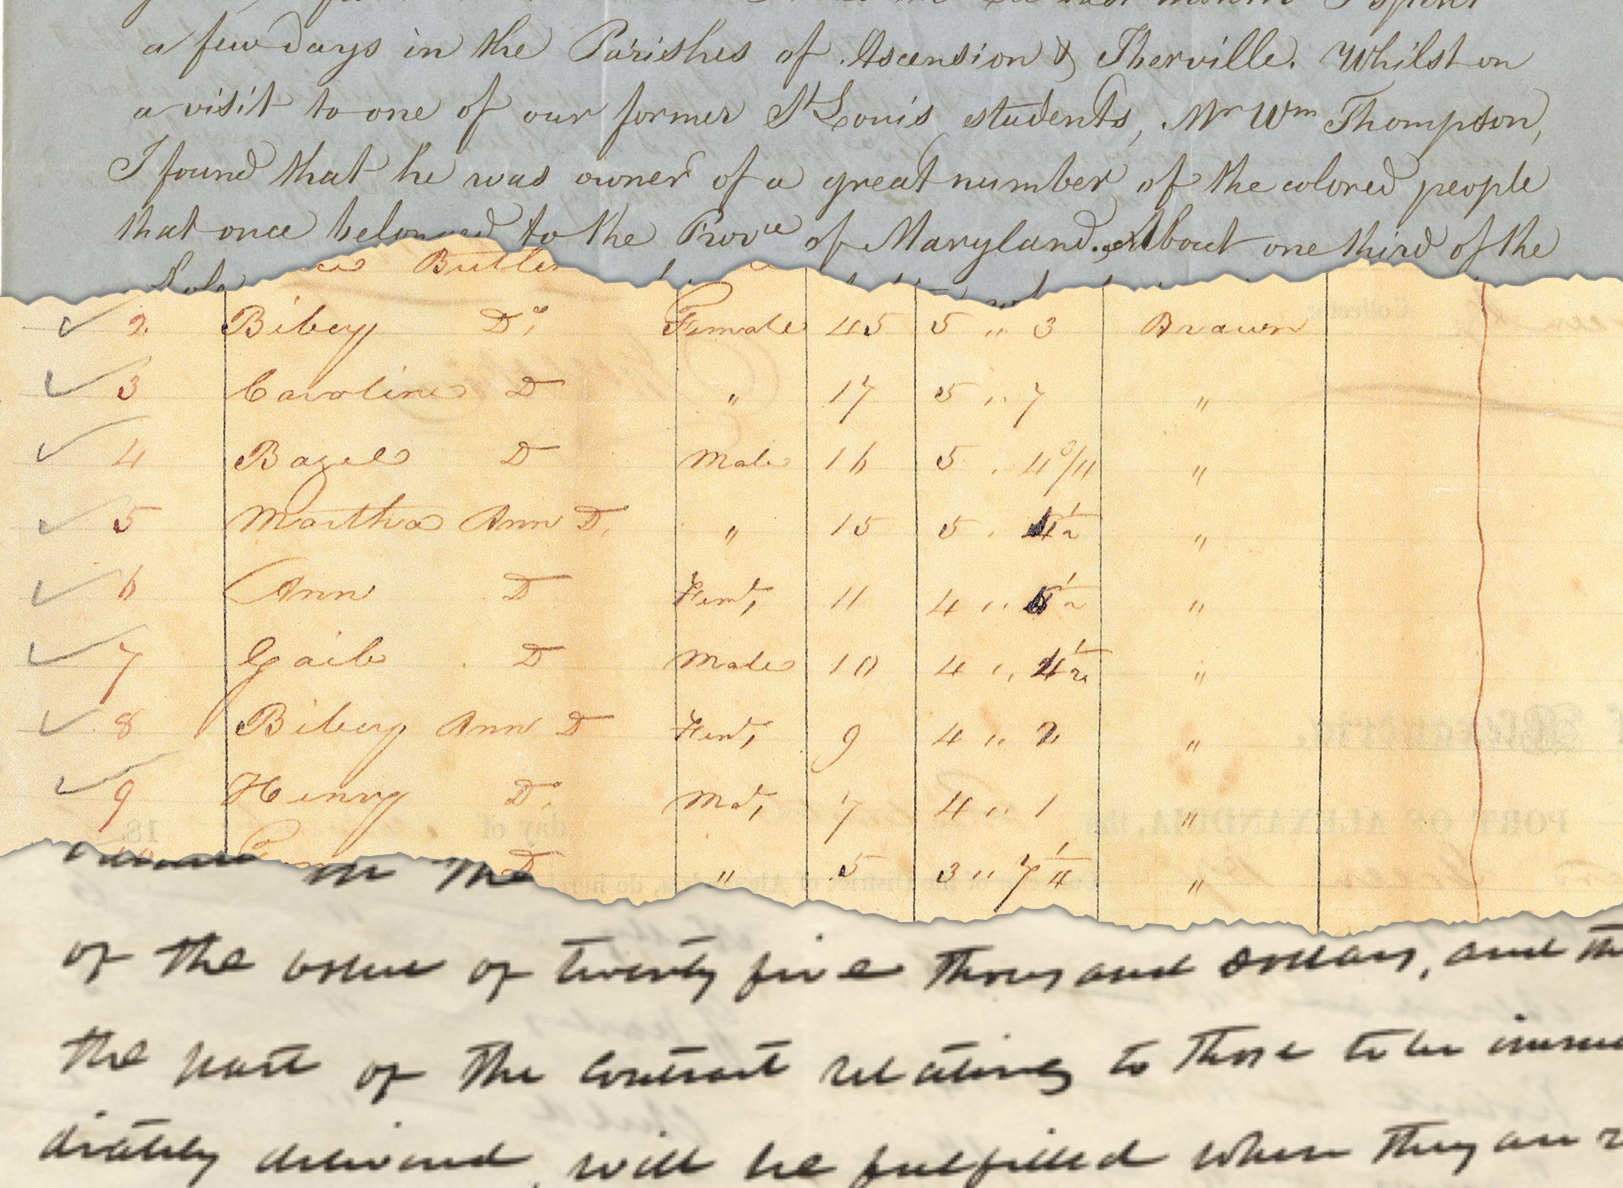 a few days in the Parishes of Ascension & Iberville. Whilst on
a visit to one of our former St Louis students, Mr Wm Thompson,
I found that he was owner of a great number of the colored people
that once belonged to the Provce of Maryland. About one third of the
Butler
2 Bibey Do, Female 45 5 " 3 Brown
3 Caroline D " 17 5 " 7 "
4 Bazel D Male 16 5 . "
5 Martha Ann D. " 15 5 . 4½ "
6 Ann D Fem, 11 4 " ½ "
7 Gaib D Male 10 4 " 4½ "
8 Bibey Ann D Fem, 9 4 " 2 "
9 Henry Do. Mal, 7 4 " 1 "
D " 5 3 " 7¼ "
PORT OF ALEXANDRIA, the
day of 18
in the
of the value of twenty five thousand dollars, and
the part of the Contract relating to those to be imme
diately delivered, will be fulfilled when they are